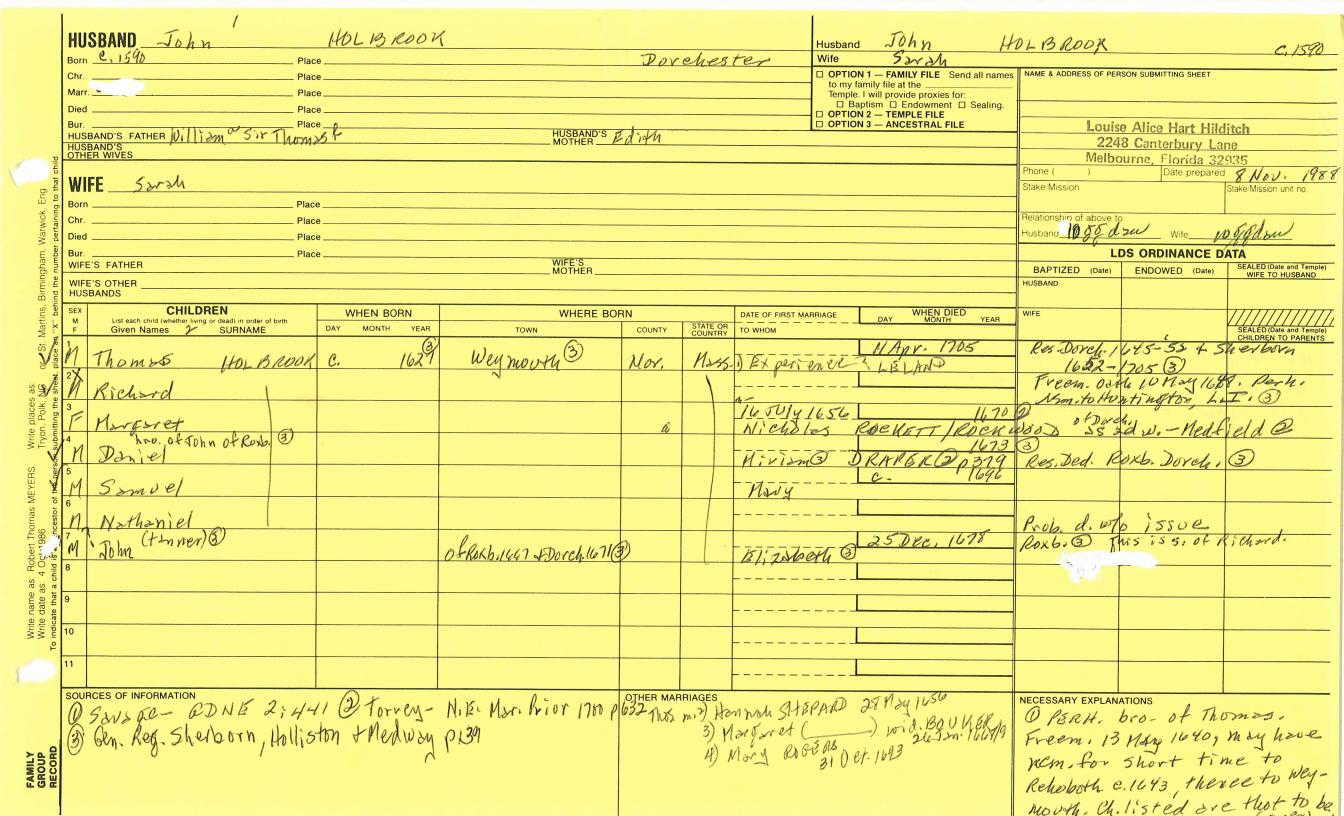 HUSBAND John 1 HOLBROOK
Born c. 1590 Place Dorchester
Chr. Place
Marr. Place
Died Place
Bur. Place
HUSBAND'S FATHER William or Sir Thomas HUSBAND'S MOTHER Edith
HUSBAND'S OTHER WIVES
WIFE Sarah
Born Place
Chr. Place
Died Place
Bur. Place
WIFE'S FATHER WIFE'S MOTHER
WIFE'S OTHER HUSBANDS
Husband John HOLBROOK c. 1590
Wife Sarah
☐ OPTION 1 — FAMILY FILE Send all names
to my family file at the
Temple. I will provide proxies for:
☐ Baptism ☐ Endowment ☐ Sealing.
☐ OPTION 2 — TEMPLE FILE
☐ OPTION 3 — ANCESTRAL FILE
NAME & ADDRESS OF PERSON SUBMITTING SHEET
Louise Alice Hart Hilditch
2248 Canterbury Lane
Melbourne, Florida 32935
Phone ( ) Date prepared 8 Nov. 1988
Stake/Mission Stake/Mission unit no.
Relationship of above to
Husband 10ggdau Wife 10ggdau
LDS ORDINANCE DATA
BAPTIZED (Date) ENDOWED (Date) SEALED (Date and Temple) WIFE TO HUSBAND
HUSBAND
WIFE
SEALED (Date and Temple) CHILDREN TO PARENTS
SEX M F
CHILDREN
List each child (whether living or dead) in order of birth
Given Names 2 SURNAME
WHEN BORN
DAY MONTH YEAR
WHERE BORN
TOWN COUNTY STATE OR COUNTRY
DATE OF FIRST MARRIAGE
TO WHOM
WHEN DIED
DAY MONTH YEAR
1 M Thomas HOLBROOK c. 1627 ③ Weymouth ③ Nor. Mass. 1) Experience LELAND 11 Apr. 1705
Res. Dorch. 1645-52 & Sherborn
1652-1705 ③
2 M Richard
Freem. oath 10 May 1648. Perh.
rem. to Huntington, L.I. ③
3 F Margaret 16 July 1656 1670 ②
Nicholas ROCKETT/ROCKWOOD of Dorch. as 2d w. - Medfield ②
4 M Daniel bro. of John of Roxb. ③ 1673 ③
Miriam ③ DRAPER ② p379 Res. Ded. Roxb. Dorch. ③
5 M Samuel c. 1696
Mary
6 M Nathaniel
Prob. d. w/o issue
7 M John (tanner) ③ of Roxb. 1667 & Dorch. 1671 ③ 25 Dec. 1678
Elizabeth ③ Roxb. ③ This is s. of Richard.
8
9
10
11
SOURCES OF INFORMATION
① Savage - GDNE 2:441 ② Torrey - N.E. Mar. Prior 1700 p632
③ Gen. Reg. Sherborn, Holliston & Medway p139
OTHER MARRIAGES
Thos m. 2) Hannah SHEPARD 28 May 1656
3) Margaret ( ) wid. BOUKER
26 Jan. 1668/9
4) Mary ROGERS
31 Oct. 1693
NECESSARY EXPLANATIONS
① PERH. bro. of Thomas.
Freem. 13 May 1640, may have
rem. for short time to
Rehoboth c. 1643, thence to Wey-
mouth. Ch. listed are thot to be
Write name as: Robert Thomas MEYERS. Write places as: Tryon, Polk, NC or St. Martins, Birmingham, Warwick, Eng
Write date as: 4 Oct 1986
FAMILY GROUP RECORD